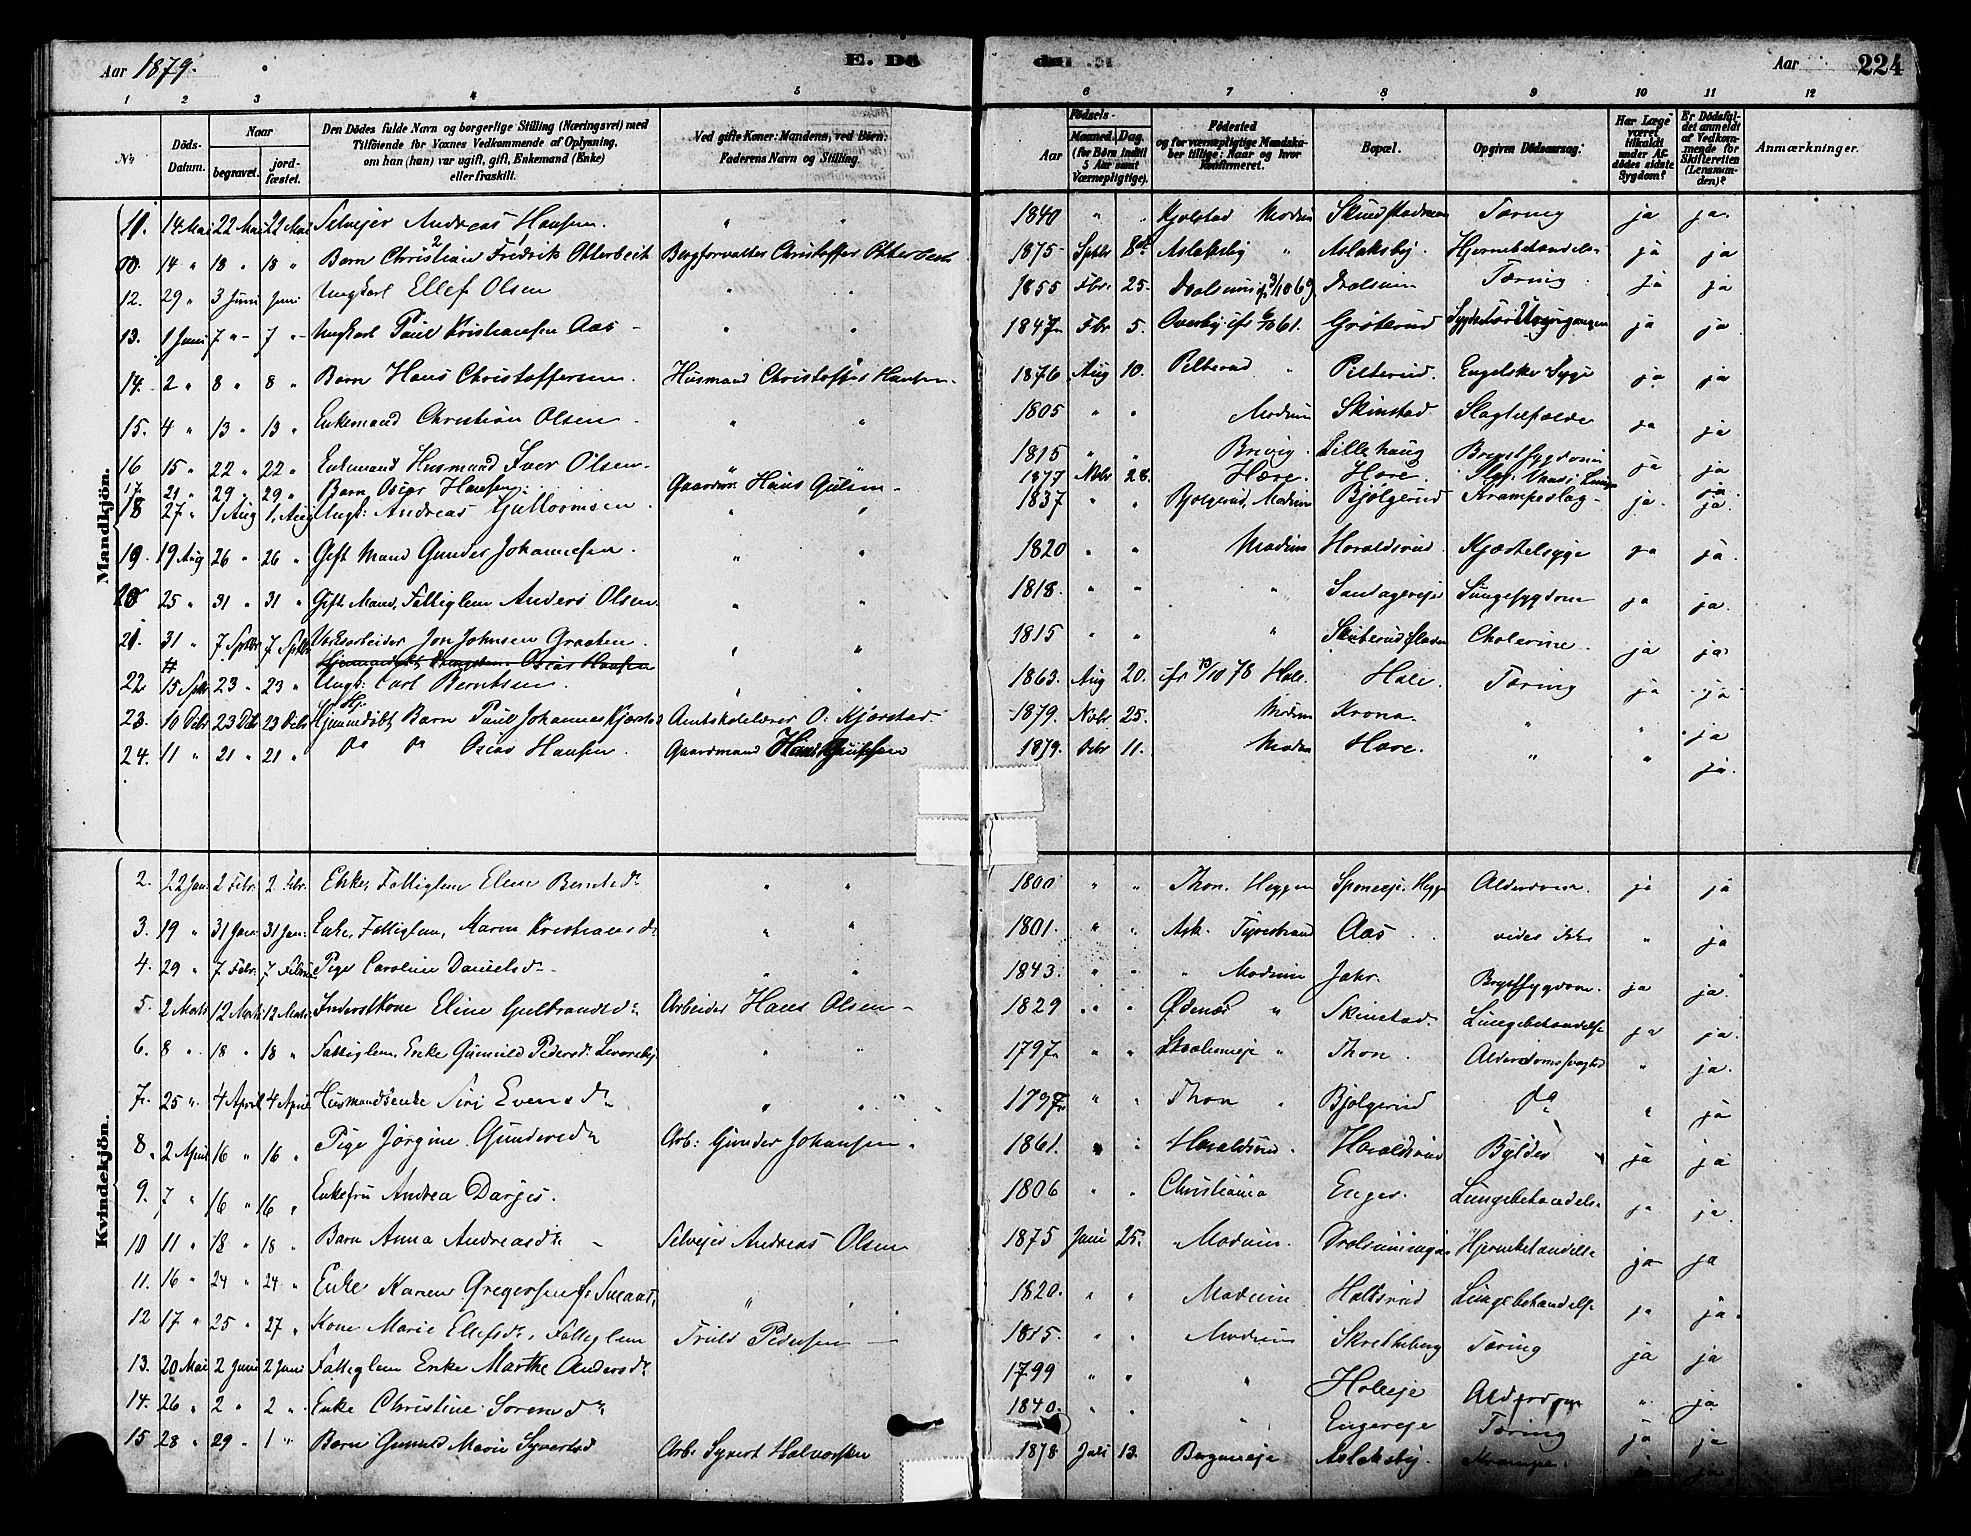 Aar 1879.
E. Dö
Aar
224
1 2 3 4 5 6 7 8 9 10 11 12
No
Döds-Datum.
Naar
begravet.
jord-fæstet.
Den Dödes fulde Navn og borgerlige Stilling (Næringsvei) med
Tilföiende for Voxnes Vedkommende af Oplysning,
om han (hun) var ugift, gift, Enkemand (Enke)
eller fraskilt.
Ved gifte Koner: Mandens, ved Börn:
Faderens Navn og Stilling.
Födsels-
Aar
Maaned. Dag.
(for Börn indtil
5 Aar samt
Værnepligtige).
Födested
og for værnepligtige Mandska-
ber tillige: Naar og hvor
konfirmeret.
Bopæl.
Opgiven Dödsaarsag:
Har Læge
været
tilkaldt
under Af-
dødes sidste
Sygdom?
Er Dödsfal-
det anmeldt
af Vedkom-
mende for
Skifteretten
(Lensman-
den)?
Anmærkninger.
Mandkjön.
11. 14 Mai 22 Mai 22 Mai Selveier Andreas Hansen. " " 1840 " " Modum Tæring ja ja.
10. 14 " 18 " 18 " Barn Christian Fredrik Otterbeck Bergforvalter Christoffer Otterbeck 1875 Sptbr 8de Aslaksby " Aslaksby. Hjernebetændelse ja ja
12. 29 " 3 Juni Juni Ungkarl Ellef Olsen " " 1855 Fbr. 25. Tæring ja ja
13. 1 Juni 7 " 7 " Ungkarl Paul Kristiansen Aas " " 1847 Fbr 5. Overby Gröterud ja ja
14. 2 " 8 " 8 " Barn Hans Christoffersen. Husmand Christoffer Hansen. 1876 Aug 10. Pilterud " Pilterud. Engelske Syge ja ja
15. 4 " 13 " 13 " Enkemand Christian Olsen " " 1805 " " Modum Skinstad Slagtilfælde ja ja
16 15 " 22 " 22 " Enkemand Husmand Iver Olsen. " 1815 " " Brevig. Lillehaug Brystsygdom ja ja
17. 21 " 29 " 29 " Barn Oscar Hansen. Gaardm. Hans Gulsen 1877 Nobr 28. Hære. Hære. ja
18 27 " 1 Aug 1. Aug Ungk. Andreas Guttormsen. " " 1837 " " Bjölgerud, Modum Bjölgerud Krampeslag ja. ja.
19. 19 Aug 26 " 26 " Gift Mand Gunder Johannesen. " " 1820 " " Modum Horaldsrud. Kjærtelsyge ja ja.
20 25 " 31 " 31 " Gift Mand, Fattiglem Anders Olsen. " " 1818. " " " Lungesygdom ja ja.
21. 31 " 7 Sptbr 7 Sptbr Jon Johnsen Graaten. " " 1815 " " " Cholerine. ja ja.
22. 15 Sptbr 23 " 23 " Ungk: Carl Berntsen. " " 1863. Aug 20. 78 Hole. Hole. Tæring ja ja
23. 10 Dcbr 23 Dcbr 23 Dcbr Hjemmedöbt Barn Paul Johannes Kjørstad Amtskolelærer O. Kjørstad. 1879. Nobr 25. Modum Krona. " " ja
24. 11 " 21 " 21 " do do Oscar Hansen. Gaardmand Hans 1879. Dcbr 11. Modum Hære. " " ja.
Kvindekjön.
2. 22 Jan. 2 Febr. 2 Febr. Enke, Fattiglem Elene Berntsdr " " 1800 " " Thon. Heggen Alderdom. ja ja
3. 19 " 31 Jan. 31 Jan. Enke, Fattiglem, Maren Kristiansdr " " 1801. " " Ask. Tyristrand Aas vides ikke " ja
4. 29 " 7 Febr. 7 Febr. Pige Caroline Danielsdr " " 1843. " " " Modum Jahr. Brystsygdom. ja ja.
5. 2 Marts 12 Marts 12 Marts Inderstkone Eline Gulbrandsdr Arbeider Hans Olsen 1829 " " " Skinstad. Lungebetændelse ja ja.
6. 8 " 18 " 18 " Fattiglem, Enke Gunild Pedersdr " " 1797 " " " Thon. Alderdomssvaghed " ja.
7. 25 " 4 April 4 April Husmandsenke Siri Evensdr " " 1797 " " Thon " Bjölgerud do " ja
8. 2 April 16 " 16 " Pige Jörgine Gundersdr Arb: Gunder Johansen. 1861. " " Horaldsrud. Horaldsrud Bylder ja ja
9. 7 " 16 " 16 " Enkefru Andrea Darjes. 1806 " " Christiania Enger. Lungebetændelse ja ja.
10 11 " 18 " 18 " Barn Anna Andreasdr. Selveier Andreas Olsen 1875 Juni 25. Modum. Hjernebetændelse ja ja
11. 16 " 24 " 24 " Enke Karen Gregersen " " 1820. " " Modum Holtsrud Lungebetændelse ja ja.
12 17 " 25 " 27 " Kone Marie Ellefsdr, Fattiglem Truls Pedersen 1815. " " Modum Skretteberg Tæring ja ja
13. 20 Mai 2 Juni 2 Juni Fattiglem Enke Marthe Andersdr 1799 " " " Holeeje Alderdom " ja
14. 26 " 2 " 2 " Enke Christine Sorensdr 1840. " " " Engereje Tæring ja ja
15 28 " 29 " 1 " Barn Gunild Marie Syvertsd Arb. Syvert Halvorsen 1878 Juli 13. Aslaksby. Krampe. ja ja